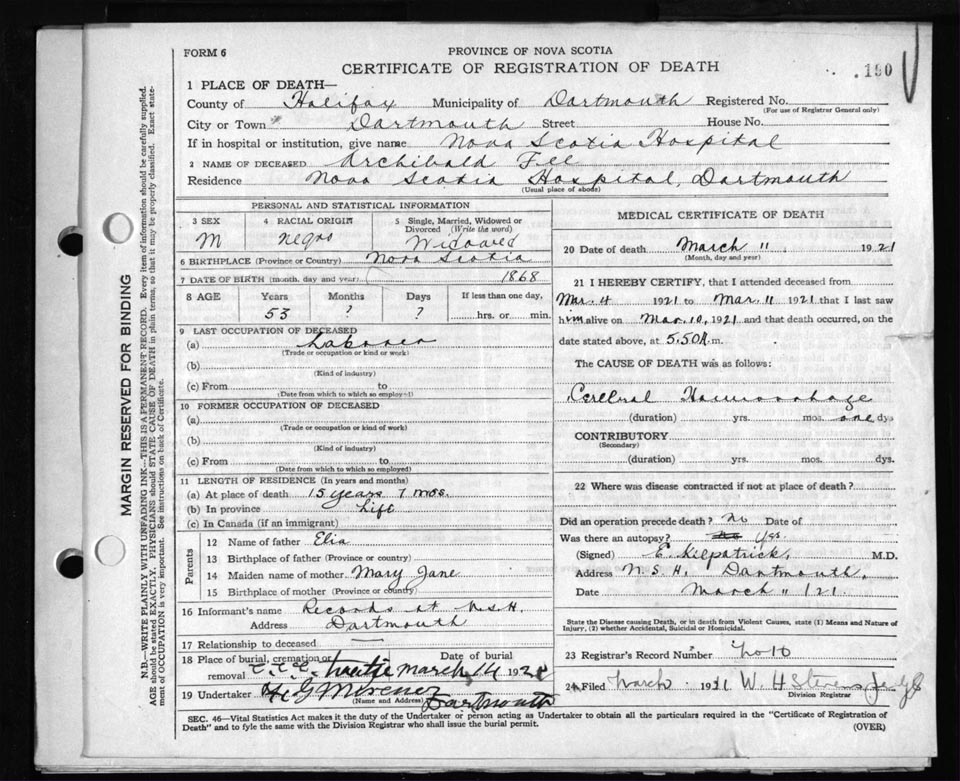 FORM 6
PROVINCE OF NOVA SCOTIA
CERTIFICATE OF REGISTRATION OF DEATH
.190
1 PLACE OF DEATH—
County of Halifax Municipality of Dartmouth Registered No.
(For use of Registrar General only)
City or Town Dartmouth Street House No.
If in hospital or institution, give name Nova Scotia Hospital
2 NAME OF DECEASED Archibald Fll
Residence Nova Scotia Hospital, Dartmouth
(Usual place of abode)
PERSONAL AND STATISTICAL INFORMATION
3 SEX 4 RACIAL ORIGIN 5 Single, Married, Widowed or Divorced (Write the word)
M negro Widowed
6 BIRTHPLACE (Province or Country) Nova Scotia
7 DATE OF BIRTH (month, day and year) 1868
8 AGE Years Months Days If less than one day,
53 ? ? hrs. or min.
9 LAST OCCUPATION OF DECEASED
(a) Laborer
(Trade or occupation or kind or work)
(b)
(Kind of industry)
(c) From to
(Date from which to which so employed)
10 FORMER OCCUPATION OF DECEASED
(a)
(Trade or occupation or kind of work)
(b)
(Kind of industry)
(c) From to
(Date from which to which so employed)
11 LENGTH OF RESIDENCE (In years and months)
(a) At place of death 15 years 7 mos.
(b) In province Life
(c) In Canada (if an immigrant)
Parents
12 Name of father Elia
13 Birthplace of father (Province or country)
14 Maiden name of mother Mary Jane
15 Birthplace of mother (Province or country)
16 Informant's name Records at N.S.H.
Address Dartmouth
17 Relationship to deceased
18 Place of burial, cremation or removal Date of burial
March 14 1921
19 Undertaker
(Name and Address) Dartmouth
MEDICAL CERTIFICATE OF DEATH
20 Date of death March 11 1921
(Month, day and year)
21 I HEREBY CERTIFY, that I attended deceased from
Mar. 4 1921 to Mar. 11 1921 that I last saw
him alive on Mar. 10, 1921 and that death occurred, on the
date stated above, at 5.50 A.m.
The CAUSE OF DEATH was as follows:
Cerebral Haemorrhage
(duration) yrs. mos. one dys
CONTRIBUTORY
(Secondary)
(duration) yrs. mos. dys.
22 Where was disease contracted if not at place of death?
Did an operation precede death? no Date of
Was there an autopsy? Yes.
(Signed) E. Kilpatrick, M.D.
Address N.S.H. Dartmouth.
Date March 11/21.
State the Disease causing Death, or in death from Violent Causes, state (1) Means and Nature of
Injury, (2) whether Accidental, Suicidal or Homicidal.
23 Registrar's Record Number
24 Filed March 1921 W. H. Stevens
Division Registrar
SEC. 46—Vital Statistics Act makes it the duty of the Undertaker or person acting as Undertaker to obtain all the particulars required in the "Certificate of Registration of
Death" and to fyle the same with the Division Registrar who shall issue the burial permit.
(OVER)
MARGIN RESERVED FOR BINDING
N.B.—WRITE PLAINLY WITH UNFADING INK—THIS IS A PERMANENT RECORD. Every item of information should be carefully supplied.
AGE should be stated EXACTLY. PHYSICIANS should STATE CAUSE OF DEATH in plain terms, so that it may be properly classified. Exact state-
ment of OCCUPATION is very important. See instructions on back of Certificate.